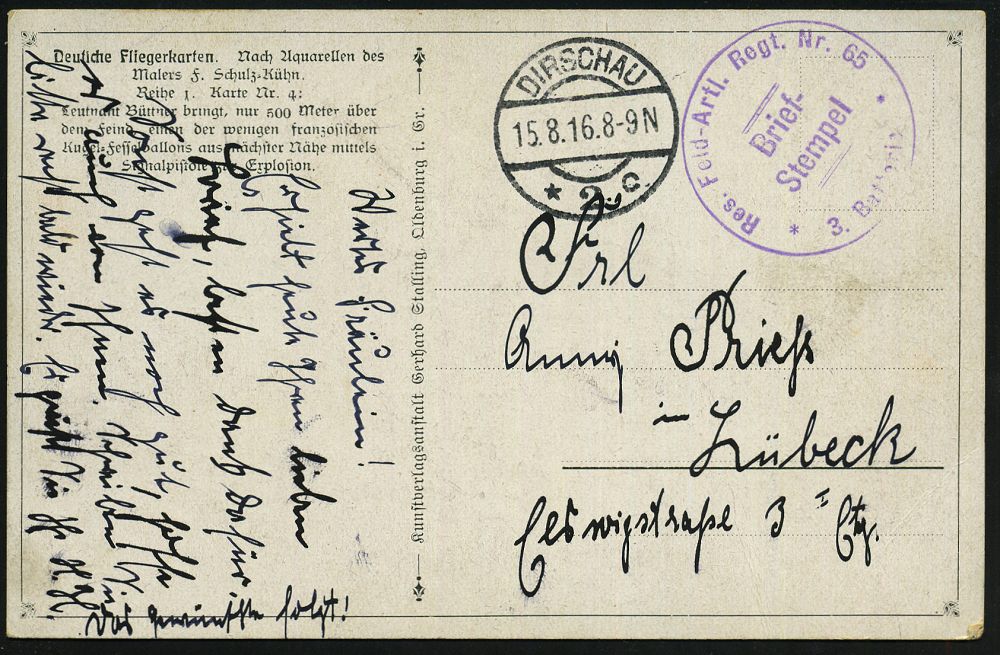 Deutsche Fliegerkarten. Nach Aquarellen des
Malers F. Schulz-Kühn.
Reihe 1. Karte Nr. 4:
Leutnant Büttner bringt, nur 500 Meter über
dem Feind, einen der wenigen französischen
Kugel-Fesselballons aus nächster Nähe mittels
Signalpistole zur Explosion.
Wertes Fräulein!
Erhielt heute Ihren lieben
Brief, besten Dank dafür
mir geht es noch gut, hoffe
auch von Ihnen. Schreiben Sie
bitte recht bald wieder. Es grüßt Sie Ihr
Das gewünschte folgt!
Kunstverlagsanstalt Gerhard Stalling, Oldenburg i. Gr.
DIRSCHAU
15.8.16.8-9N
* 2 c
Res. Feld-Artl. Regt. Nr. 65
Brief-
Stempel
* 3. Batterie *
Frl
Anny Prieß
in Lübeck
3 I Etg.